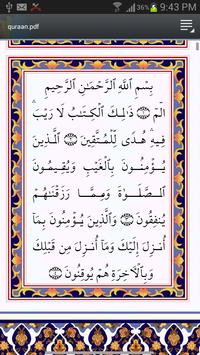 9:43 PM
quraan.pdf
بِسْمِ اللَّهِ الرَّحْمَٰنِ الرَّحِيمِ
الٓمٓ ۝ ذَٰلِكَ الْكِتَٰبُ لَا رَيْبَ ۛ
فِيهِ ۛ هُدًى لِّلْمُتَّقِينَ ۝ الَّذِينَ
يُؤْمِنُونَ بِالْغَيْبِ وَيُقِيمُونَ
الصَّلَوٰةَ وَمِمَّا رَزَقْنَٰهُمْ
يُنفِقُونَ ۝ وَالَّذِينَ يُؤْمِنُونَ بِمَا
أُنزِلَ إِلَيْكَ وَمَا أُنزِلَ مِن قَبْلِكَ
وَبِالْآخِرَةِ هُمْ يُوقِنُونَ ۝